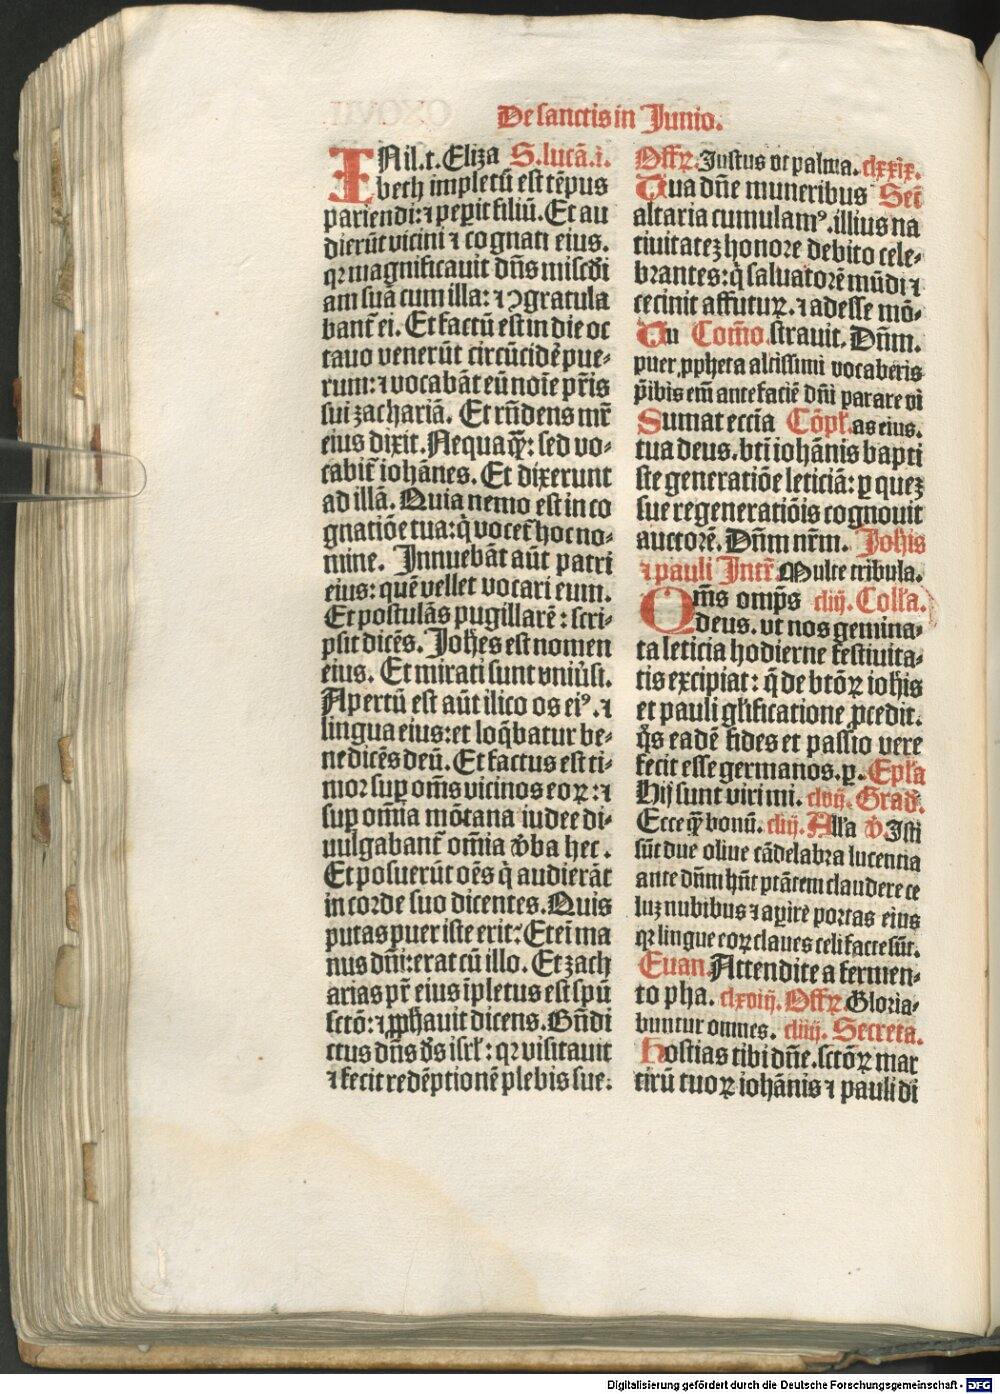 De sanctis in Junio.
INil.t. Eliza S. lucā.i.
beth impletū est tēpus
pariendi: ⁊ peꝑit filiū. Et au
dierūt vicini ⁊ cognati eius.
qꝛ magnificauit dn̄s misc̄di
am suā cum illa: ⁊ ꝯgratula
bant̄ ei. Et factū est in die oc
tauo venerūt circūcidē pue-
rum: ⁊ vocabāt eū noīe pr̄is
sui zachariā. Et rn̄dens mr̄
eius dixit. Nequaq̄ꝫ: sed vo-
cabit̄ iohānes. Et dixerunt
ad illā. Quia nemo est in co
gnatiōe tua: q̇ vocet̄ hoc no-
mine. Innuebāt aūt patri
eius: quē vellet vocari eum.
Et postulās pugillarē: scri-
psit dicēs. Joh̄es est nomen
eius. Et mirati sunt vniu̓si.
Apertū est aūt ilico os eiꝰ. ⁊
lingua eius: et loq̄batur be-
nedicēs deū. Et factus est ti-
mor suꝑ om̄s vicinos eoꝝ: ⁊
suꝑ om̄ia mōtana iudee di-
uulgabant̄ om̄ia v̓ba hec.
Et posuerūt oēs q̇ audierāt
in corde suo dicentes. Quis
putas puer iste erit: Eteī ma
nus dn̄i: erat cū illo. Et zach
arias pr̄ eius īpletus est spū
sctō: ⁊ ꝓph̄auit dicens. Bn̄di
ctus dn̄s d̄s isrl̄: qꝛ visitauit
⁊ fecit redēptionē plebis sue.
Offꝝ. Justus vt palma. clxxix.
Tua dn̄e muneribus Sec̄
altaria cumulamꝰ. illius na
tiuitatez honore debito cele-
brantes: q̇ saluatorē mūdi ⁊
cecinit affutuꝝ. ⁊ adesse mō-
Tu Com̄o. strauit. Dn̄m.
puer ꝓpheta altissimi vocaberis
p̄ibis em̄ ante faciē dn̄i parare vi
Sumat eccīa Cōpl̄. as eius.
tua deus. bt̄i iohānis bapti
ste generatiōe leticiā: ꝑ quez
sue regeneratiōis cognouit
auctorē. Dn̄m nr̄m. Joh̄is
⁊ pauli Intr̄. Multe tribula.
Om̄s omp̄s cliij. Coll̄a.
deus. vt nos gemina-
ta leticia hodierne festiuita-
tis excipiat: q̄ de bt̄oꝝ ioh̄is
et pauli gl̄ificatione ꝓcedit.
q̄s eadē fides et passio vere
fecit esse germanos. ꝑ. Epl̄a
Hij sunt viri mi. clvij. Grad̄.
Ecce q̄ꝫ bonū. cliij. All̄a v̓. Isti
sūt due oliue cādelabra lucentia
ante dn̄m hn̄t ptātem claudere ce
luz nubibus ⁊ aꝑire portas eius
qꝛ lingue eoꝝ claues celi facte sūt.
Euan. Attendite a fermen-
to pha. clxviij. Offꝝ. Gloria-
buntur omnes. cliiij. Secreta.
Hostias tibi dn̄e. sctōꝝ mar
tirū tuoꝝ iohānis ⁊ pauli di
Digitalisierung gefördert durch die Deutsche Forschungsgemeinschaft - DFG